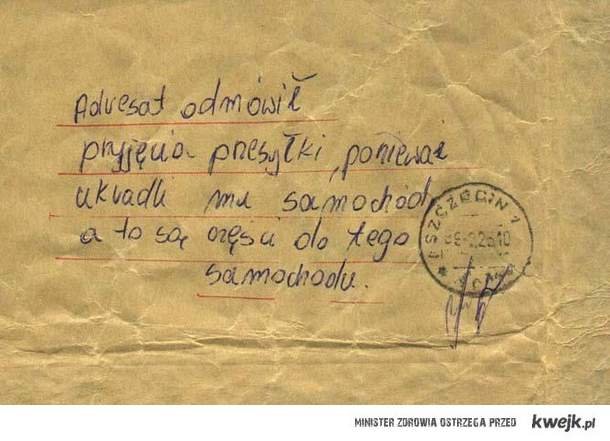 Adresat odmówił
przyjęcia przesyłki, ponieważ
ukradli mu samochód,
a to są części do tego
samochodu.
SZCZECIN 1
MINISTER ZDROWIA OSTRZEGA PRZED kwejk.pl